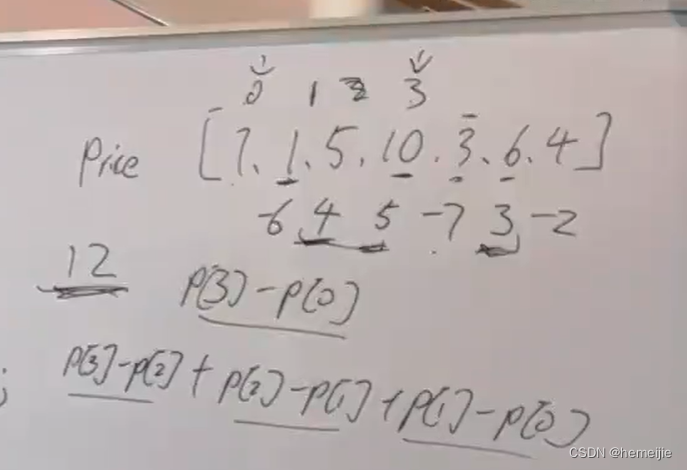 0 1 2 3
Price [7, 1, 5, 10, 3, 6, 4]
-6 4 5 -7 3 -2
12 p[3]-p[0]
; p[3]-p[2]+p[2]-p[1]+p[1]-p[0]
CSDN @hemeijie